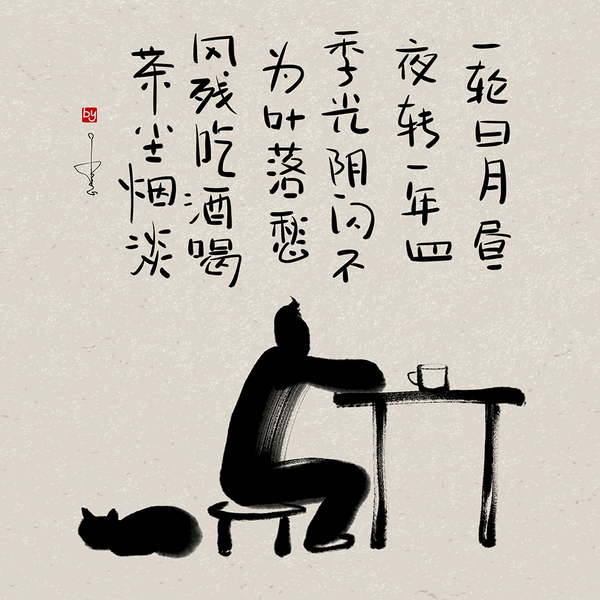 一轮日月昼
夜转一年四
季光阴闪不
为叶落愁
风残吃酒喝
茶尘烟淡
by